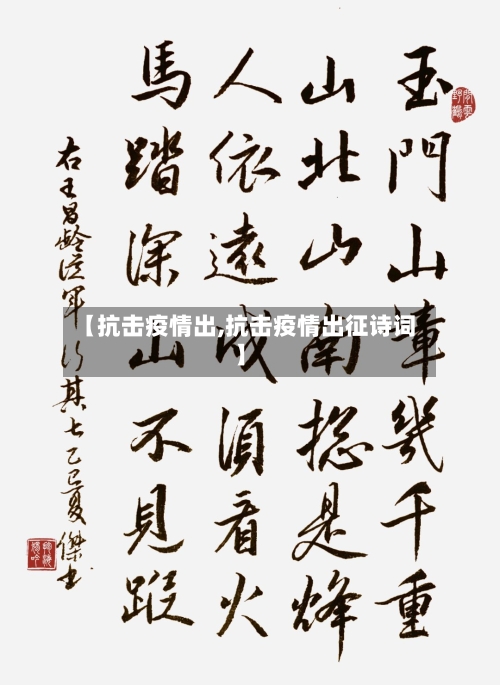 玉門山嶂幾千重
山北山南総是烽
人依遠戍須看火
馬踏深山不見蹤
右王昌龄従軍行其七乙巳夏傑书
【抗击疫情出,抗击疫情出征诗词
】